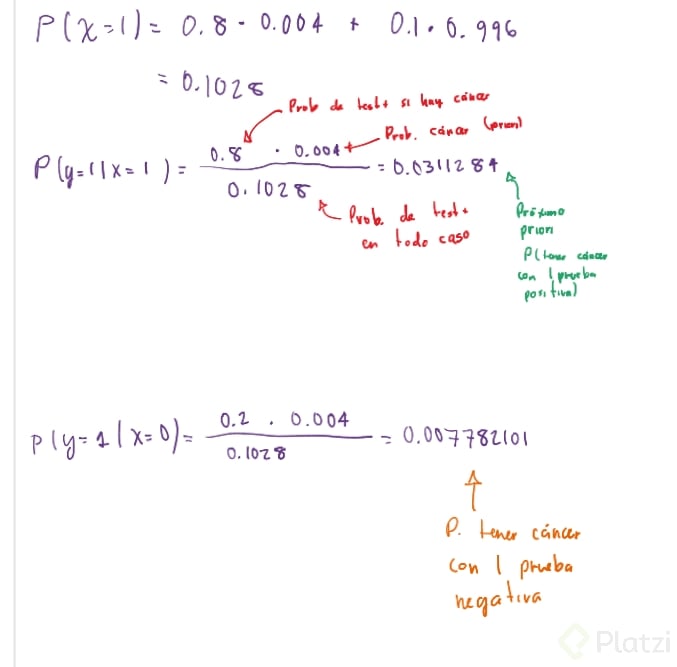 P(x=1) = 0.8 · 0.004 + 0.1 · 0.996
= 0.1028
Prob de test+ si hay cáncer
Prob. cáncer (priori)
P(y=1|x=1) = 0.8 · 0.004 / 0.1028 = 0.0311284
Prob. de test+
en todo caso
Próximo
priori
P(tener cáncer
con 1 prueba
positiva)
P(y=1|x=0) = 0.2 . 0.004 / 0.1028 = 0.007782101
P. tener cáncer
con 1 prueba
negativa
Platzi